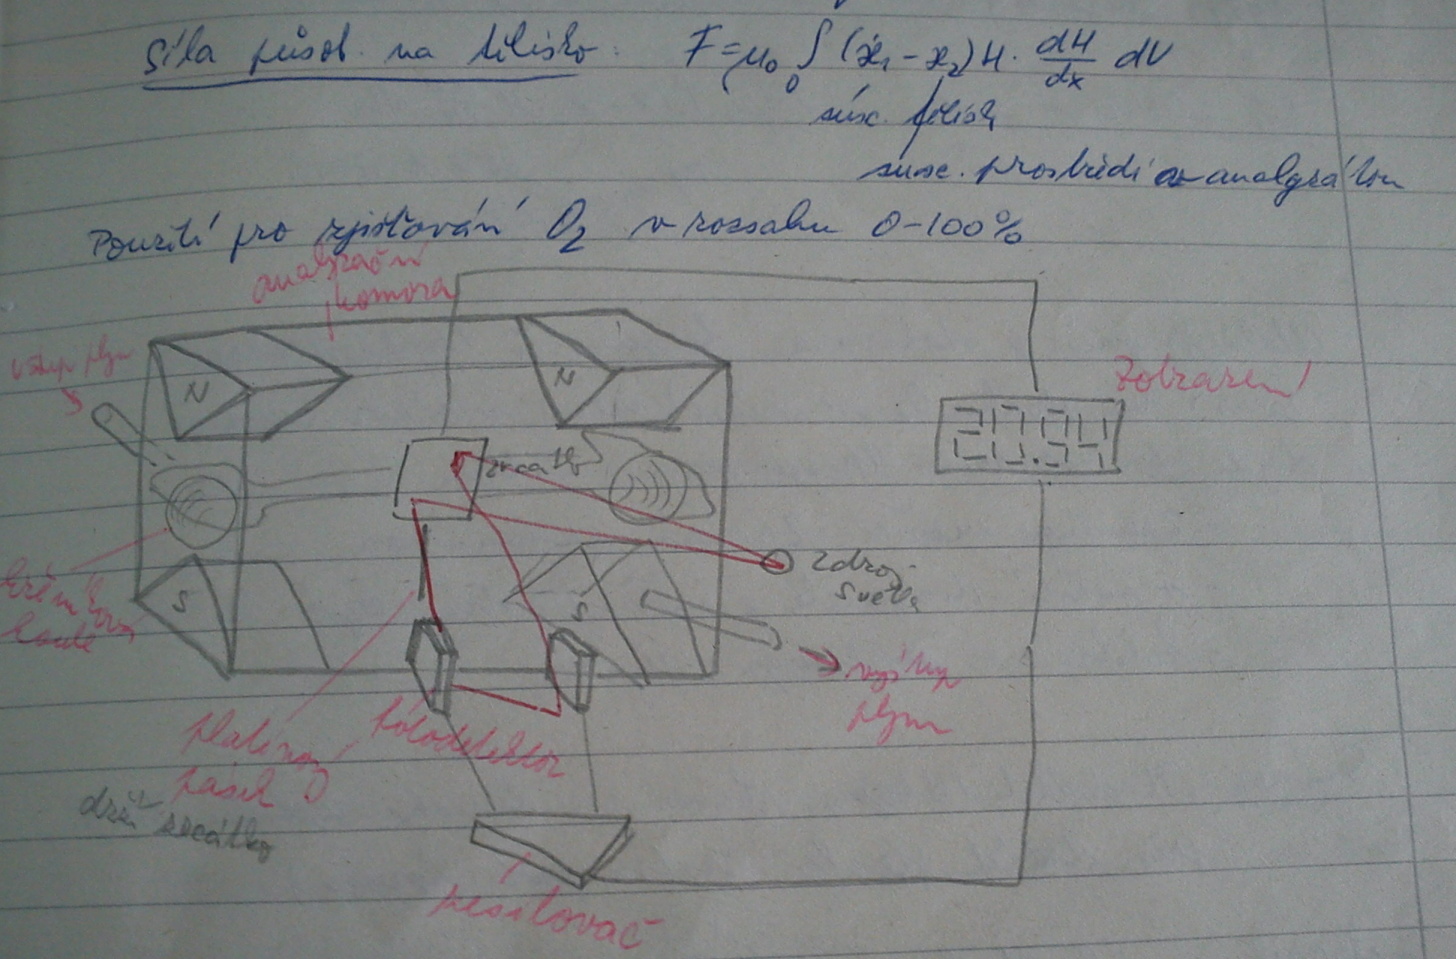 Síla působ. na tělísko: F = μ₀ ∫₀ (ϰ₁ - ϰ₂) H · dH/dx dV
susc. tělísk
susc. prostředí a analyzátoru
Použití pro zjišťování O₂ v rozsahu 0-100%
analyzační
komora
vstup plyn
N
N
Zobrazení
20.94
zrcátko
zdroj
světla
S
S
křemíková
koule
výstup
plynu
platinový
pásek
fotodetektor
drží zrcátko
zesilovač